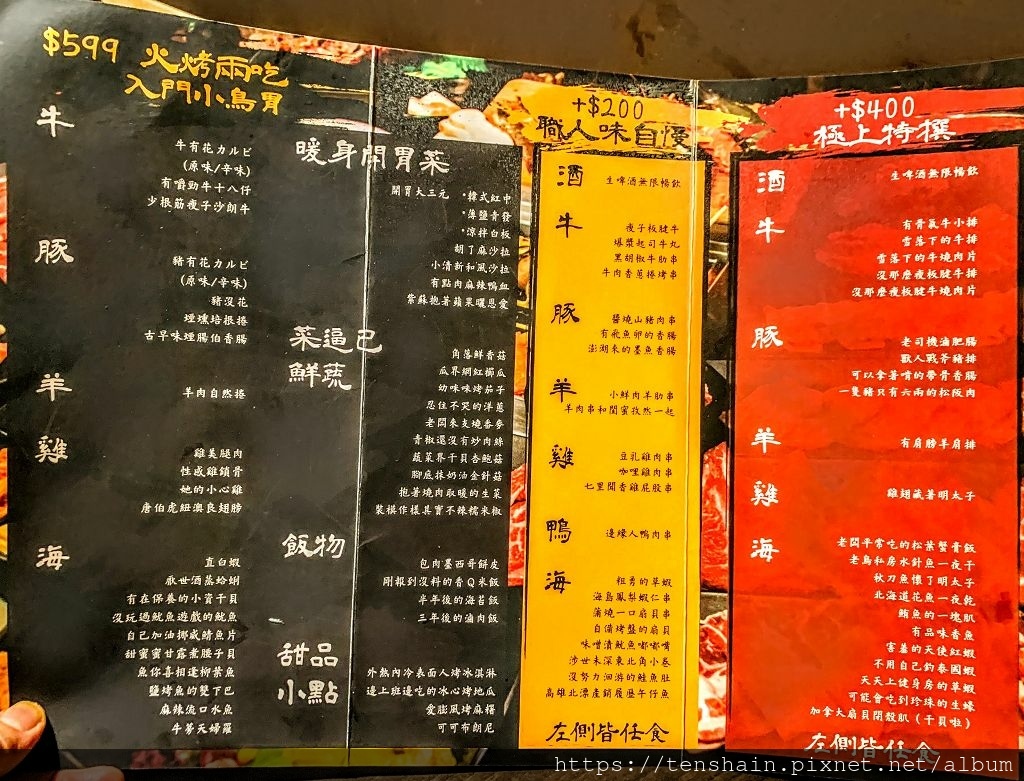 $599 火烤兩吃
入門小鳥胃
牛
牛有花カルビ
(原味/辛味)
有嚼勁牛十八仔
少根筋瘦子沙朗牛
豚
豬有花カルビ
(原味/辛味)
豬沒花
煙燻培根捲
古早味煙腸伯香腸
羊
羊肉自然捲
雞
雞美腿肉
性感雞鎖骨
她的小心雞
唐伯虎紐澳良翅膀
海
直白蝦
厭世酒蒸蛤蜊
有在保養的小資干貝
沒玩過魷魚遊戲的魷魚
自己加油挪威鯖魚片
甜蜜蜜甘露煮腰子貝
魚你喜相逢柳葉魚
鹽烤魚的雙下巴
麻辣流口水魚
牛蒡天婦羅
暖身開胃菜
開胃大三元 •韓式紅中
•薄鹽青發
•涼拌白板
胡了麻沙拉
小清新和風沙拉
有點肉麻辣鴨血
紫蘇抱著蘋果曬恩愛
菜逼巴
鮮蔬
角落鮮香菇
瓜界網紅櫛瓜
幼味味烤茄子
忍住不哭的洋蔥
老闆來支燒番麥
青椒還沒有炒肉絲
蔬菜界干貝杏鮑菇
腳底抹奶油金針菇
抱著燒肉取暖的生菜
裝模作樣其實不辣糯米椒
飯物
包肉墨西哥餅皮
剛報到沒料的香Q米飯
半年後的海苔飯
三年後的滷肉飯
甜品
小點
外熱內冷表面人烤冰淇淋
邊上班邊吃的冰心烤地瓜
愛膨風烤麻糬
可可布朗尼
+$200
職人味自慢
酒
生啤酒無限暢飲
牛
瘦子板腱牛
爆漿起司牛丸
黑胡椒牛肋串
牛肉香蔥捲烤串
豚
醬燒山豬肉串
有飛魚卵的香腸
澎湖來的墨魚香腸
羊
小鮮肉羊肋串
羊肉串和閨蜜孜然一起
雞
豆乳雞肉串
咖哩雞肉串
七里聞香雞屁股串
鴨
邊緣人鴨肉串
海
粗勇的草蝦
海島鳳梨蝦仁串
蒲燒一口扇貝串
自備烤盤的扇貝
味噌漬魷魚嘟嘟嘴
涉世未深東北角小卷
沒努力洄游的鮭魚肚
高雄北漂產銷履歷午仔魚
左側皆任食
+$400
極上特撰
酒
生啤酒無限暢飲
牛
有骨氣牛小排
雪落下的牛排
雪落下的牛燒肉片
沒那麼瘦板腱牛排
沒那麼瘦板腱牛燒肉片
豚
老司機滷肥腸
獸人戰斧豬排
可以拿著啃的帶骨香腸
一隻豬只有六兩的松阪肉
羊
有肩膀羊肩排
雞
雞翅藏著明太子
海
老闆平常吃的松葉蟹膏飯
老鳥私房水針魚一夜干
秋刀魚懷了明太子
北海道花魚一夜乾
鮪魚的一塊肌
有品味香魚
害羞的天使紅蝦
不用自己釣泰國蝦
天天上健身房的草蝦
可能會吃到珍珠的生蠔
加拿大扇貝閉殼肌(干貝啦)
左側皆任食
https://tenshain.pixnet.net/album